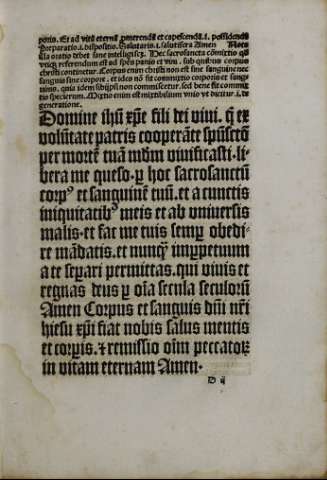 poris. Et ad vitā eternā ꝓmerendā et capescendā .i. possidendā
Preparatio .i. dispositio. Salutaris .i. salutifera Amen
illa oratio debet sane intelligi: Nec sacrosancta cōmixtio
referendum est ad spēs panis et vini. sub quibus corpus
christi continetur. Corpus enim christi non est sine sanguine nec
sanguis sine corpore. et ideo nō fit commixtio corporis et sangui
nis. quia idem sibiipsi non commiscetur. sed bene fit commix
tio specierum. Mixtio enim est mixtibilium vnio vt dicitur .i. de
generatione.
Domine ihū xp̄e fili dei viui. q̄ ex
volūtate patris cooperāte sp̄usctō
per mortē tuā mūdm viuificasti. li-
bera me queso. ꝑ hoc sacrosanctū
corpꝰ et sanguinē tuū. et a cunctis
iniquitatibꝰ meis et ab vniuersis
malis. et fac me tuis semꝑ obedi-
re mādatis. et nunqꝫ inꝑpetuum
a te seꝑari permittas. qui viuis et
regnas deus ꝑ oīa secula seculorū
Amen Corpus et sanguis dn̄i nr̄i
ihesu xp̄i fiat nobis salus mentis
et corꝑis. ⁊ remissio oīm peccatoꝝ
in vitam eternam Amen.
D ij